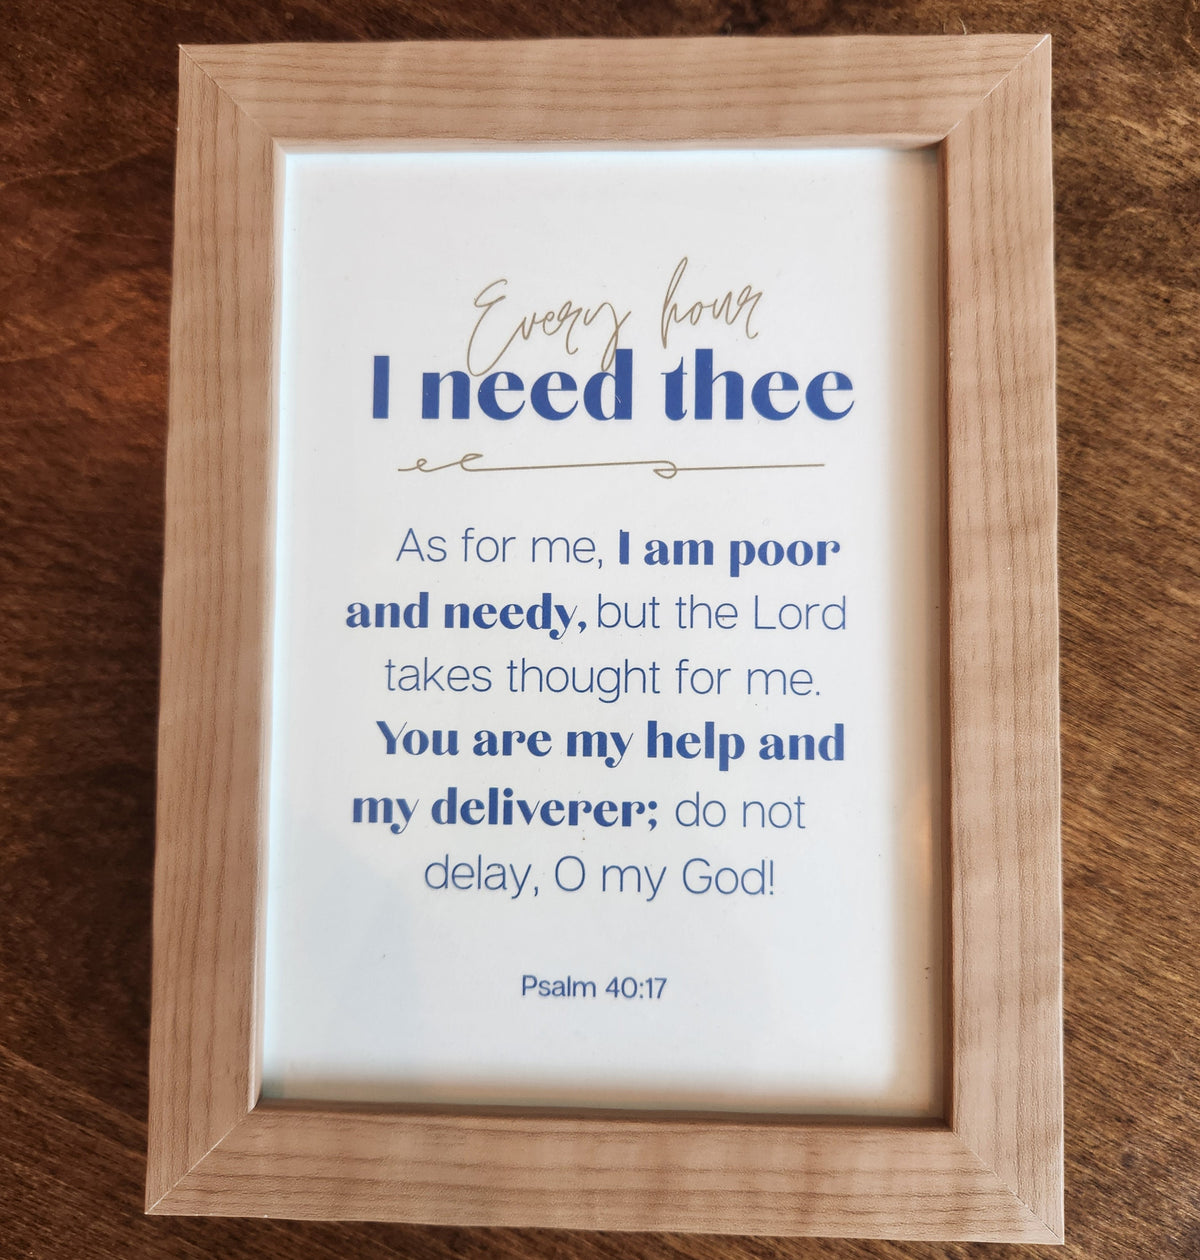 Every hour
I need thee
As for me, I am poor
and needy, but the Lord
takes thought for me.
You are my help and
my deliverer; do not
delay, O my God!
Psalm 40:17